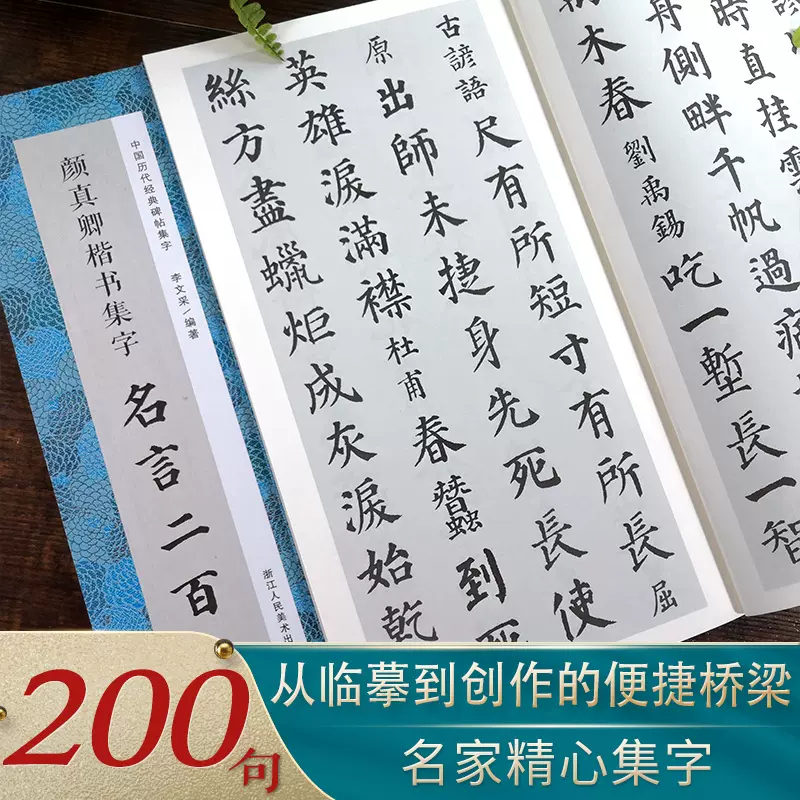 中国历代经典碑帖集字 李文采/编著
颜真卿楷书集字 名言二百
浙江人民美术出
時直挂雲
舟側畔千帆過病
木春 劉禹錫 吃一塹長一智
古諺語 尺有所短寸有所長 屈
原 出師未捷身先死長使
英雄淚滿襟 杜甫 春蠶到死
絲方盡蠟炬成灰淚始乾
200句
从临摹到创作的便捷桥梁
名家精心集字